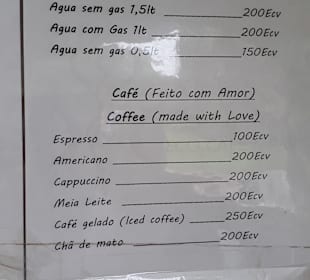 Agua sem gas 1,5lt ____________200Ecv
Agua com Gas 1lt ____________200Ecv
Agua sem gas 0,5lt ____________150Ecv
Café (Feito com Amor)
Coffee (made with Love)
Espresso ____________________100Ecv
Americano __________________200Ecv
Cappuccino _________________200Ecv
Meia Leite _________________200Ecv
Café gelado (Iced coffee) _____250Ecv
Chã de mato ______________200Ecv